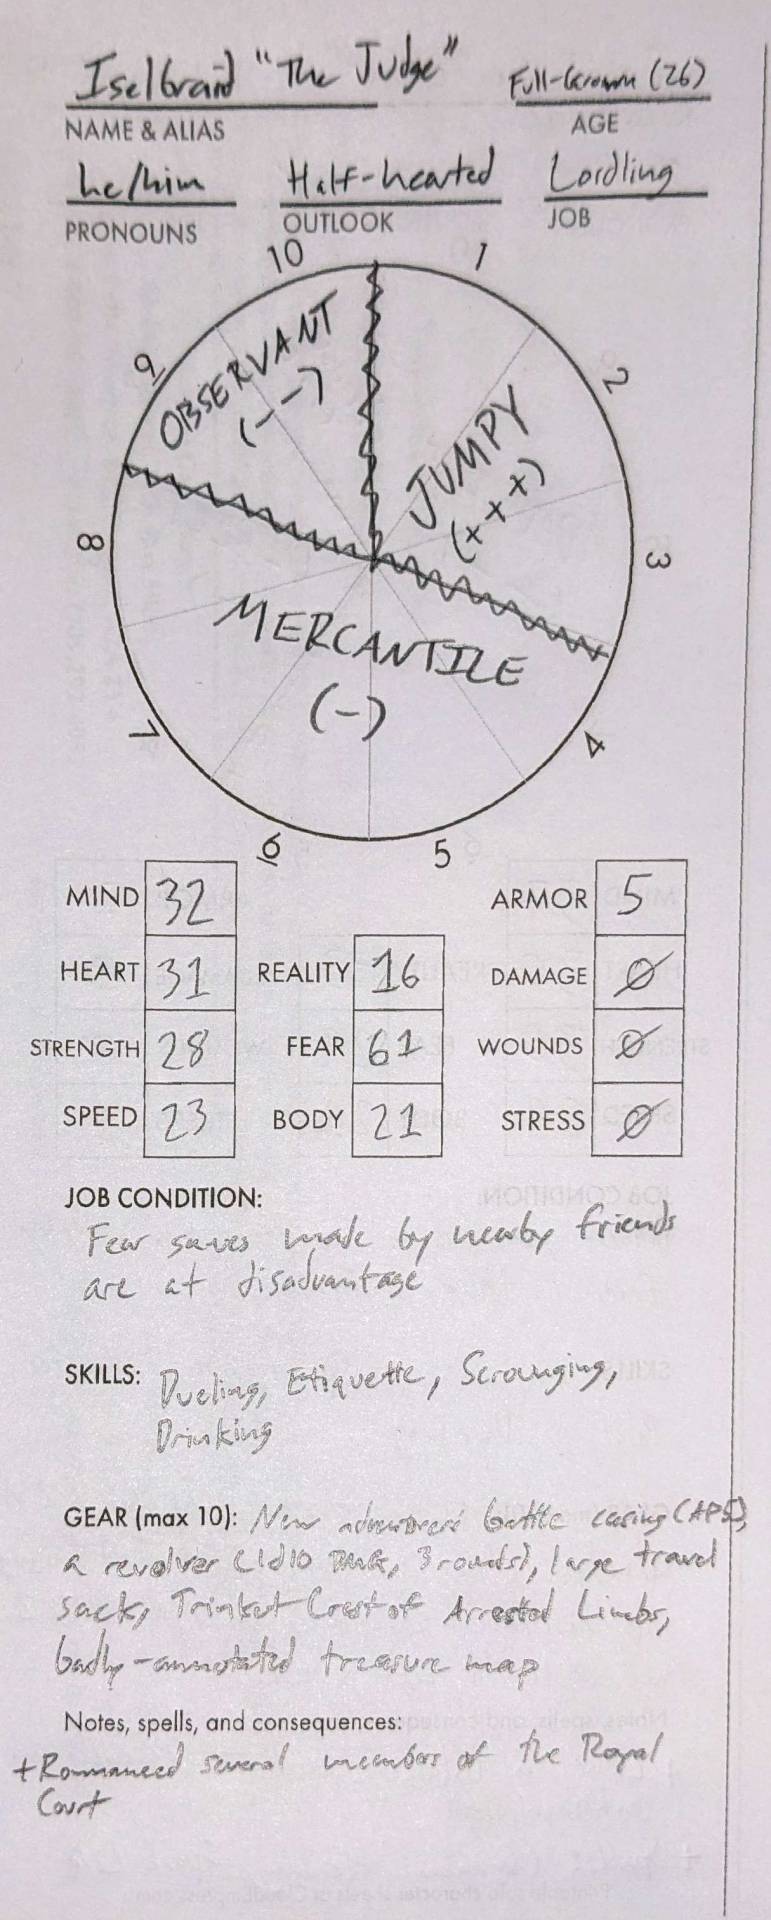 Iselbraid "The Judge" Full-Grown (26)
NAME & ALIAS AGE
he/him Half-hearted Lordling
PRONOUNS OUTLOOK JOB
10 1
OBSERVANT
(--)
9 2
JUMPY
(+++)
8 3
MERCANTILE
(-)
7 4
6 5
MIND 32 ARMOR 5
HEART 31 REALITY 16 DAMAGE Ø
STRENGTH 28 FEAR 61 WOUNDS Ø
SPEED 23 BODY 21 STRESS Ø
JOB CONDITION:
Fear saves made by nearby friends
are at disadvantage
SKILLS: Dueling, Etiquette, Scrounging,
Drinking
GEAR (max 10): New adventurers' battle casing (AP5),
a revolver (1d10 DMG, 3 rounds), large travel
sack, Trinket Crest of Arrested Limbs,
badly-annotated treasure map
Notes, spells, and consequences:
+Romanced several members of the Royal
Court